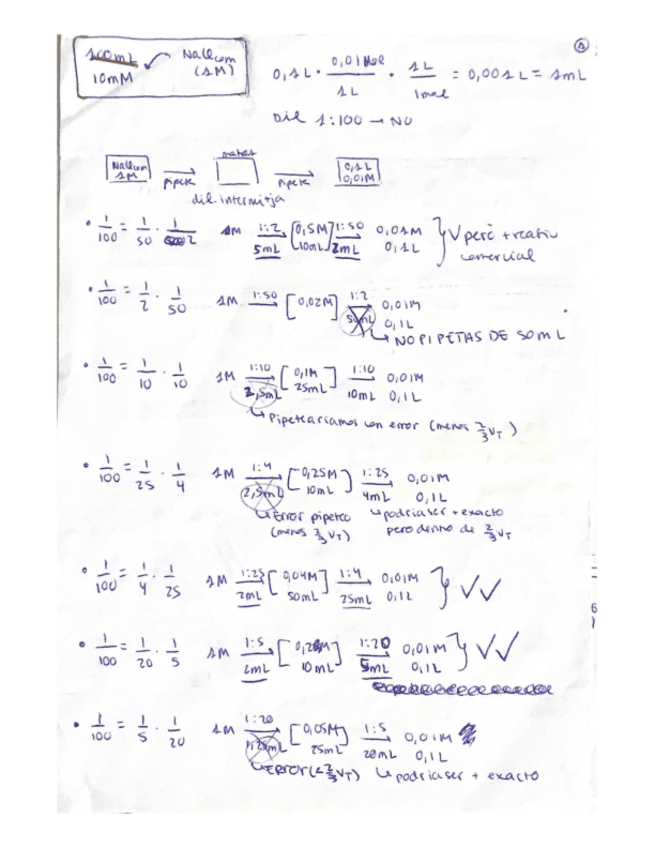 ①
100mL NaClcom
10mM (1M)
0,1L · 0,01Mol / 1L · 1L / 1mol = 0,001L = 1mL
Dil 1:100 → NO
NaClcom 1M → pipeta matràs → pipeta 0,1L 0,01M
dil. intermitja
• 1/100 = 1/50 · 1/2 1M 1:2 → 5mL [0,5M 10mL] 1:50 → 2mL 0,01M 0,1L } V però + reactiu
comercial
• 1/100 = 1/2 · 1/50 1M 1:50 → [0,02M] 1:2 → 50mL 0,01M 0,1L
↳ NO PIPETAS DE 50mL
• 1/100 = 1/10 · 1/10 1M 1:10 → 2,5mL [0,1M 25mL] 1:10 → 10mL 0,01M 0,1L
↳ Pipetearíamos con error (menos 2/3 VT)
• 1/100 = 1/25 · 1/4 1M 1:4 → 2,5mL [0,25M 10mL] 1:25 → 4mL 0,01M 0,1L
↳ Error pipeteo ↳ podria ser + exacto
(menos 2/3 VT) pero dentro de 2/3 VT
• 1/100 = 1/4 · 1/25 1M 1:25 → 2mL [0,04M 50mL] 1:4 → 25mL 0,01M 0,1L } ✓✓
• 1/100 = 1/20 · 1/5 1M 1:5 → 2mL [0,2M 10mL] 1:20 → 5mL 0,01M 0,1L } ✓✓
• 1/100 = 1/5 · 1/20 1M 1:20 → 1,25mL [0,05M 25mL] 1:5 → 20mL 0,01M 0,1L
↳ ERROR (<2/3 VT) ↳ podria ser + exacto